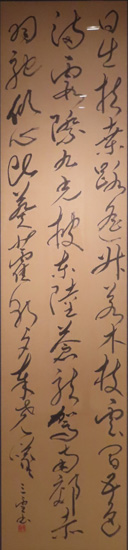 日出扶桑路遥升若木枝云间五色
满霞际九光披东陆苍龙驾南郊赤
羽驰倾心比葵藿朝夕奉尧曦